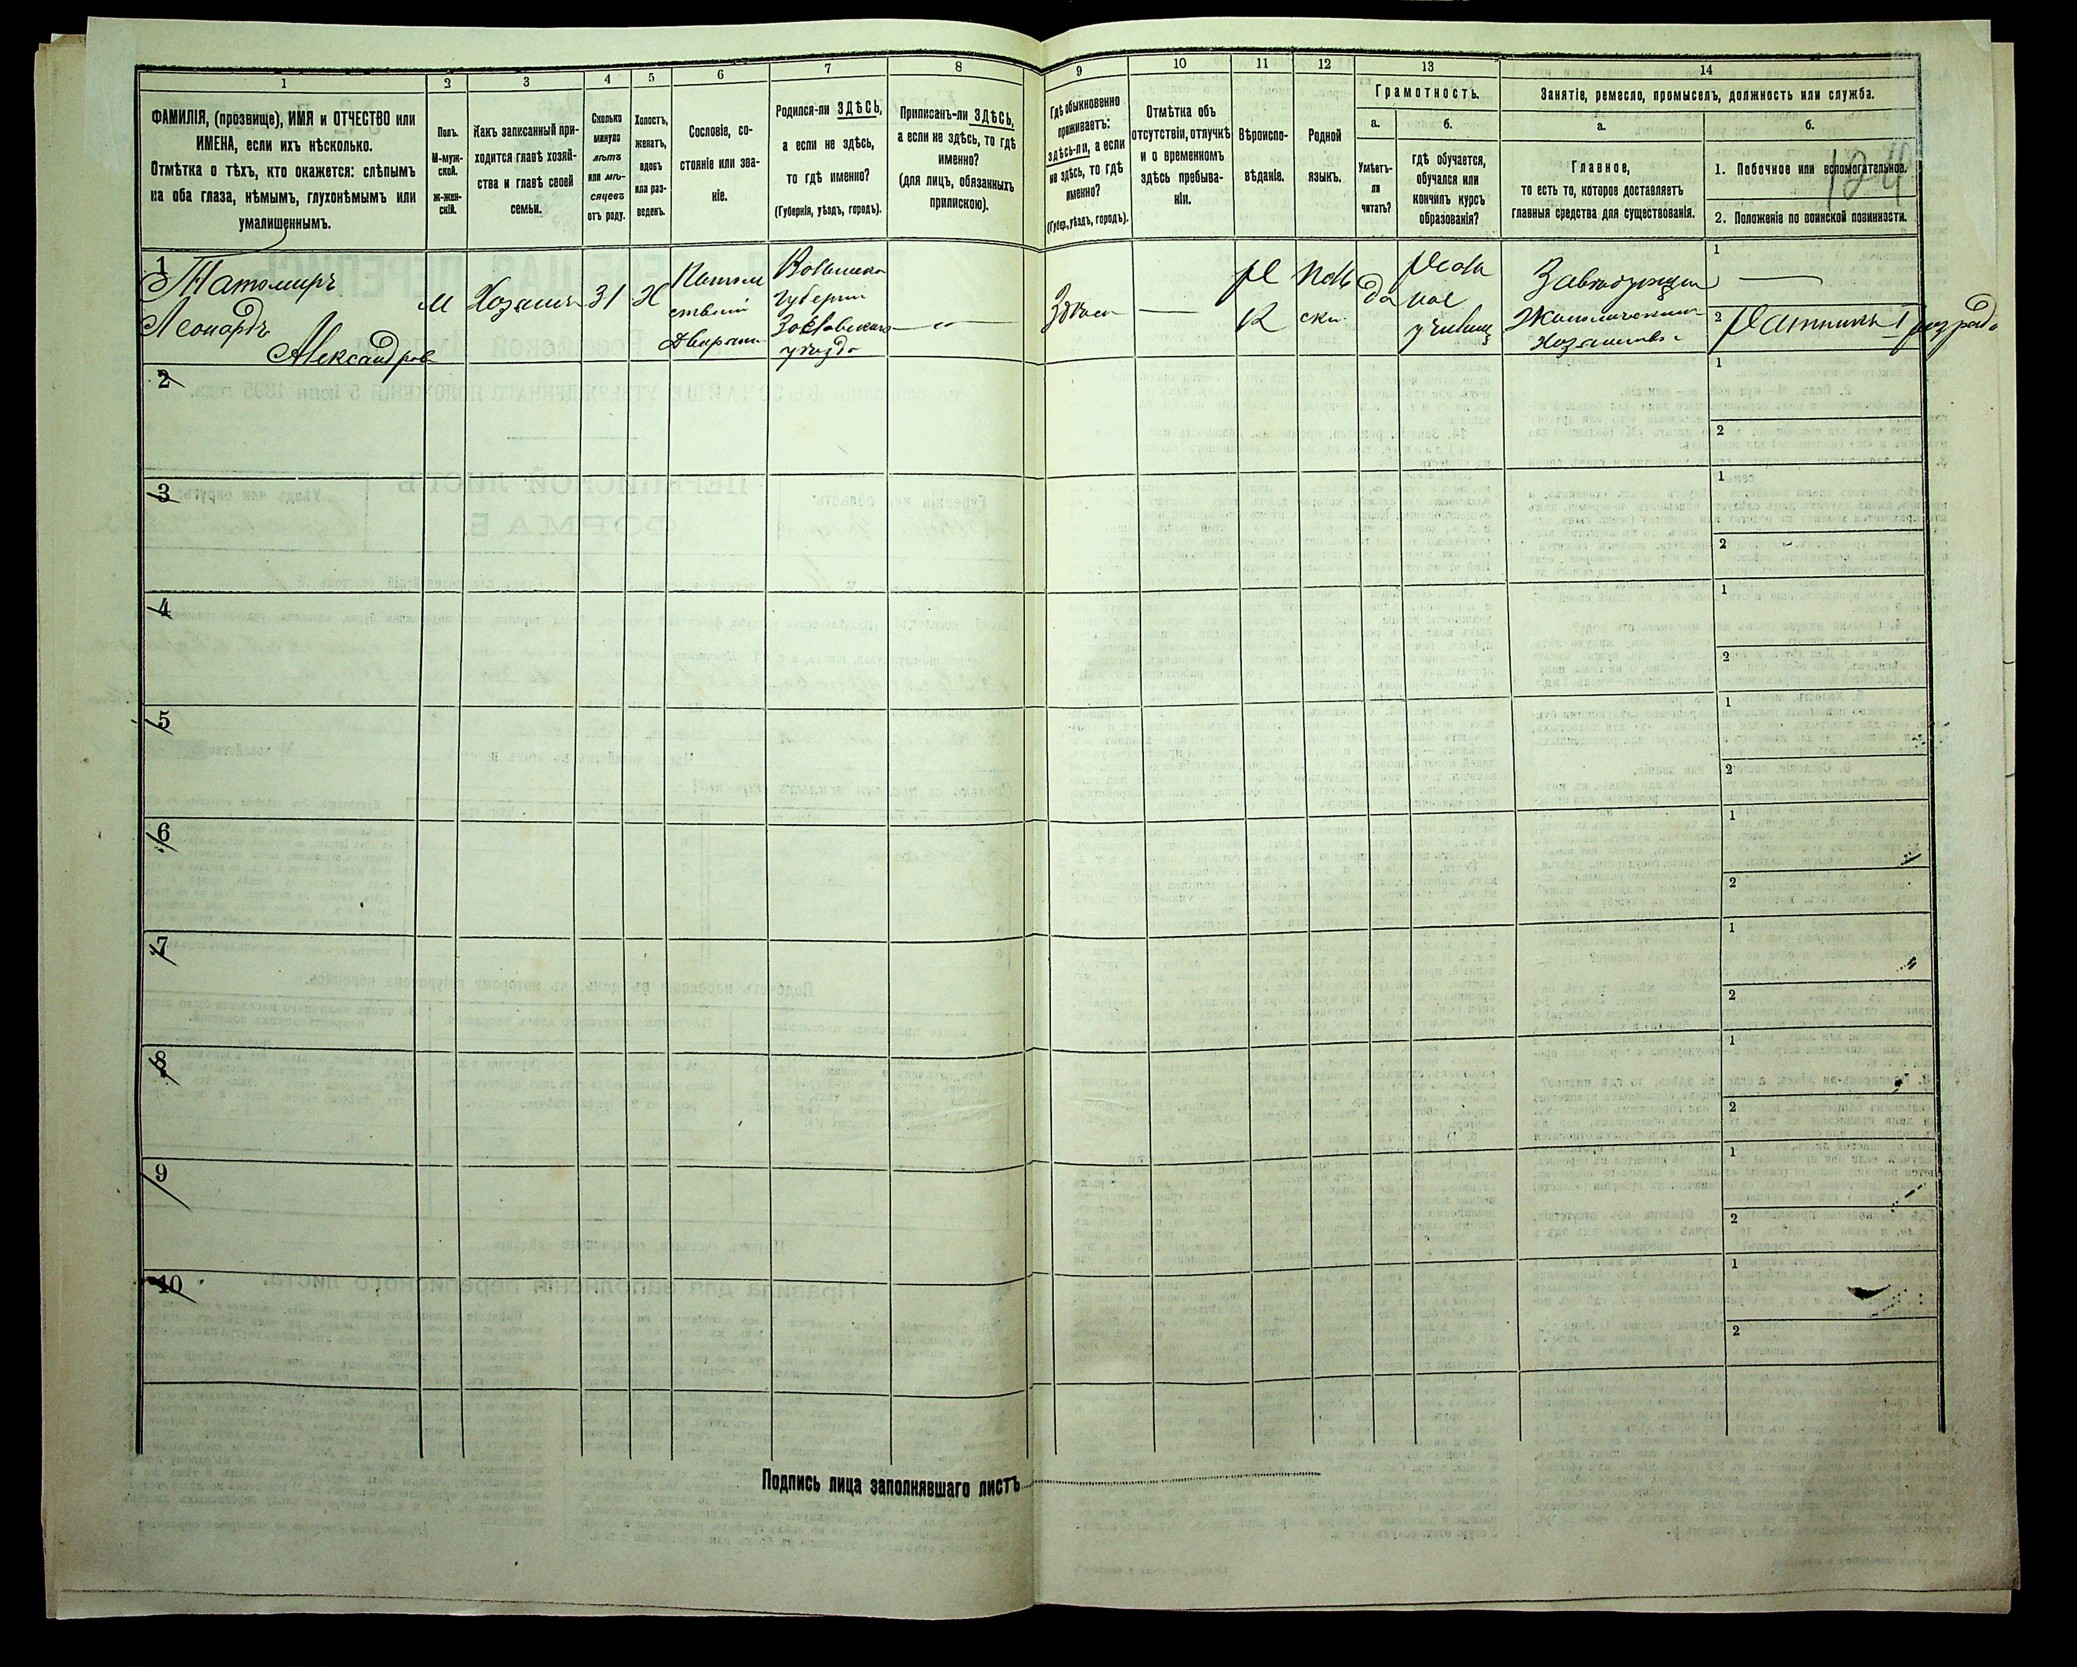 1
2
3
4
5
6
7
8
9
10
11
12
13
14
ФАМИЛІЯ, (прозвище), ИМЯ и ОТЧЕСТВО или
ИМЕНА, если ихъ нѣсколько.
Отмѣтка о тѣхъ, кто окажется: слѣпымъ
на оба глаза, нѣмымъ, глухонѣмымъ или
умалишеннымъ.
Полъ.
М-муж-
ской.
Ж-жен-
скій.
Какъ записанный при-
ходится главѣ хозяй-
ства и главѣ своей
семьи.
Сколько
минуло
лѣтъ
или мѣ-
сяцевъ
отъ роду.
Холостъ,
женатъ,
вдовъ
или раз-
веденъ.
Сословіе, со-
стояніе или зва-
ніе.
Родился-ли ЗДѢСЬ,
а если не здѣсь,
то гдѣ именно?
(Губернія, уѣздъ, городъ).
Приписанъ-ли ЗДѢСЬ,
а если не здѣсь, то гдѣ
именно?
(для лицъ, обязанныхъ
припискою).
Гдѣ обыкновенно
проживаетъ:
здѣсь-ли, а если
не здѣсь, то гдѣ
именно?
(Губер., уѣздъ, городъ).
Отмѣтка объ
отсутствіи, отлучкѣ
и о временномъ
здѣсь пребыва-
ніи.
Вѣроиспо-
вѣданіе.
Родной
языкъ.
Грамотность.
а.
б.
Умѣетъ-
ли
читать?
гдѣ обучается,
обучался или
кончилъ курсъ
образованія?
Занятіе, ремесло, промыселъ, должность или служба.
а.
б.
Главное,
то есть то, которое доставляетъ
главныя средства для существованія.
1. Побочное или вспомогательное.
2. Положеніе по воинской повинности.
1
Татомиръ
Леонардъ
Александров
М
Хозяинъ
31
Х
Потом
ствений
Дворянин
Волынско
Губернии
Уѣзда
Здѣсь
Р
К
Поль
ски
Да
Реаль
ное
училищ
Завѣдующий
Экономическим
хозяйством
1
2 Ратникъ 1 разряда
2
1
2
3
1
2
4
1
2
5
1
2
6
1
2
7
1
2
8
1
2
9
1
2
10
1
2
Подпись лица заполнявшаго листъ